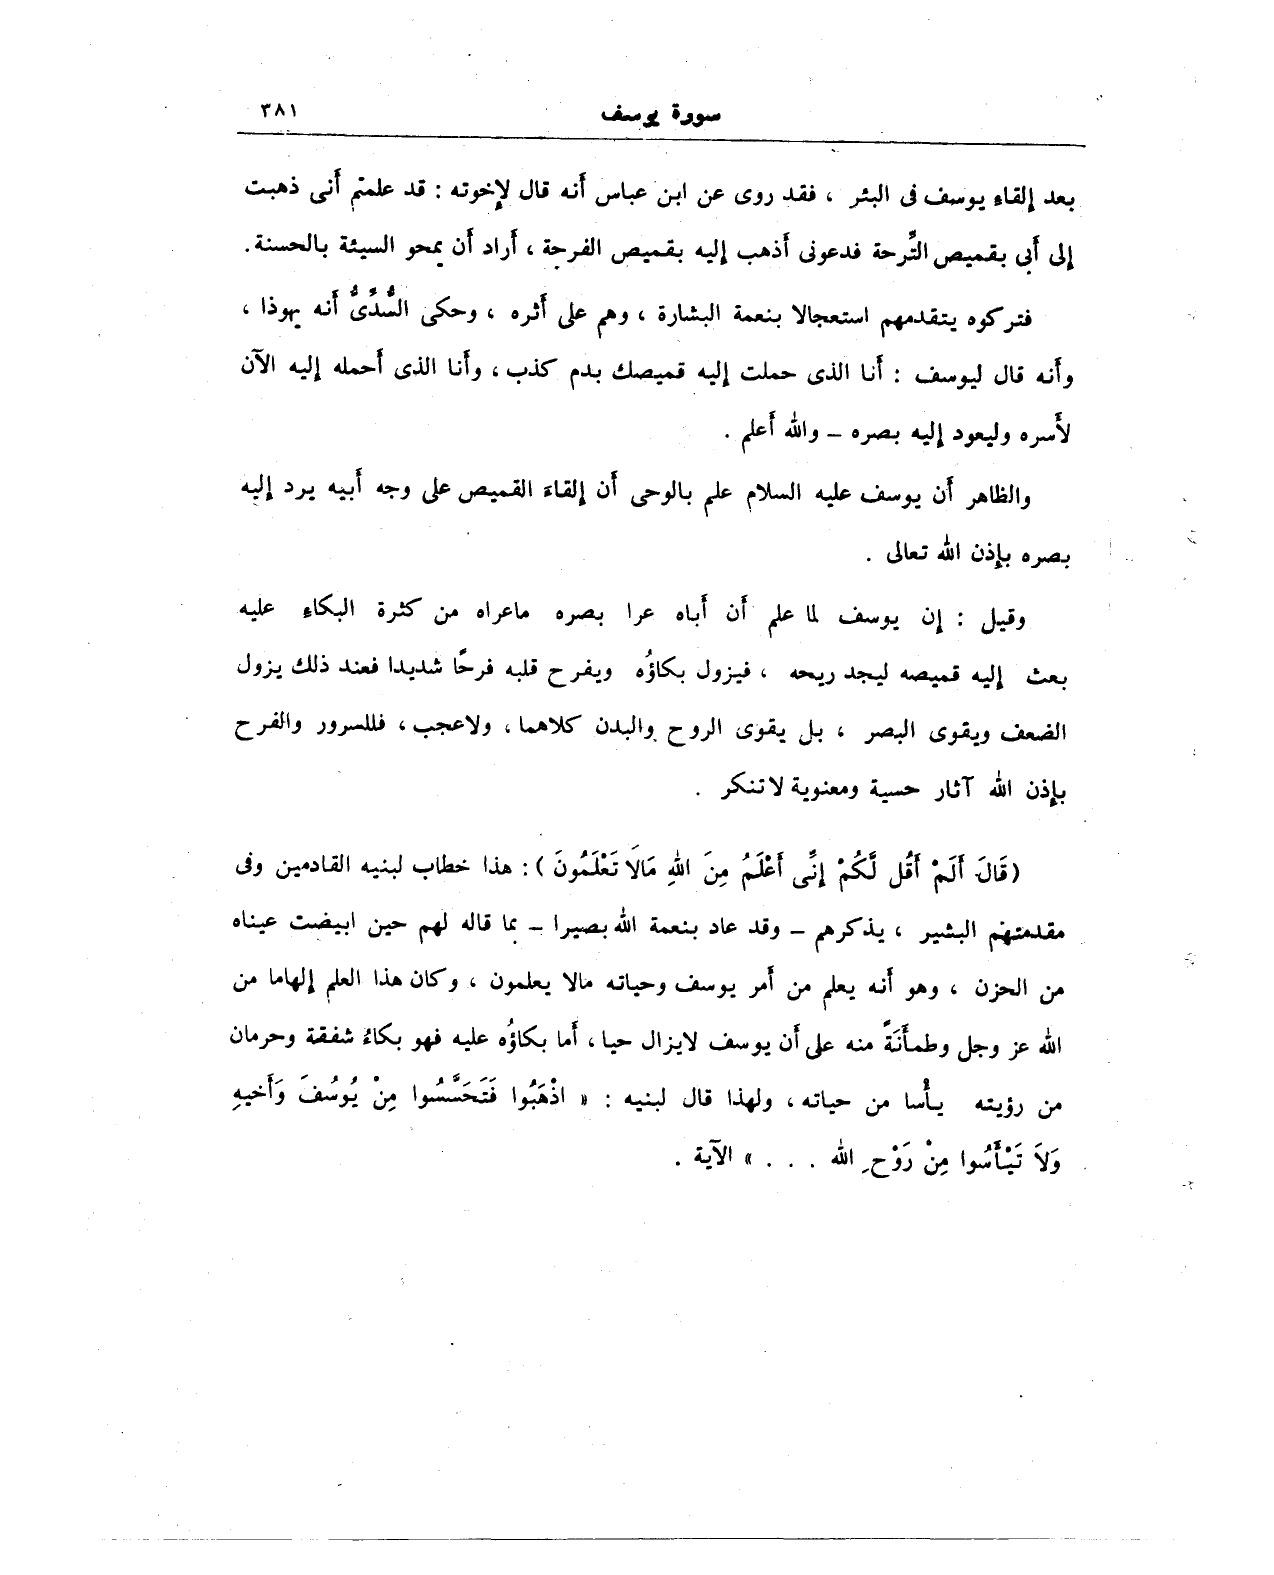 سورة يوسف ٣٨١
بعد إلقاء يوسف فى البئر ، فقد روى عن ابن عباس أَنه قال لإخوته : قد علمتم أَنى ذهبت
إلى أَبى بقميص التِّرحة فدعونى أَذهب إليه بقميص الفرجة ، أَراد أَن يمحو السيئة بالحسنة .
فتركوه يتقدمهم استعجالا بنعمة البشارة ، وهم على أَثره ، وحكى السُّدِّىُّ أَنه يهوذا ،
وأَنه قال ليوسف : أَنا الذى حملت إليه قميصك بدم كذب ، وأَنا الذى أَحمله إليه الآن
لأَسره وليعود إليه بصره – والله أَعلم .
والظاهر أَن يوسف عليه السلام علم بالوحى أَن إلقاءَ القميص على وجه أَبيه يرد إليه
بصره بإذن الله تعالى .
وقيل : إن يوسف لما علم أَن أَباه عرا بصره ماعراه من كثرة البكاءِ عليه
بعث إليه قميصه ليجد ريحه ، فيزول بكاؤُه ويفرح قلبه فرحًا شديدا فعند ذلك يزول
الضعف ويقوى البصر ، بل يقوى الروح والبدن كلاهما ، ولاعجب ، فللسرور والفرح
بإذن الله آثار حسية ومعنوية لاتنكر .
(قَالَ أَلَمْ أَقُل لَّكُمْ إِنِّى أَعْلَمُ مِنَ اللهِ مَالَا تَعْلَمُونَ) : هذا خطاب لبنيه القادمين وفى
مقدمتهم البشير ، يذكرهم – وقد عاد بنعمة الله بصيرا – بما قاله لهم حين ابيضت عيناه
من الحزن ، وهو أَنه يعلم من أَمر يوسف وحياته مالا يعلمون ، وكان هذا العلم إلهاما من
الله عز وجل وطمأَنَةً منه على أَن يوسف لايزال حيا ، أَما بكاؤُه عليه فهو بكاءُ شفقة وحرمان
من رؤيته يأْسا من حياته ، ولهذا قال لبنيه : « اذْهَبُوا فَتَحَسَّسُوا مِنْ يُوسُفَ وَأَخيهِ
وَلَا تَيْأَسُوا مِنْ رَوْحِ الله . . . » الآية .